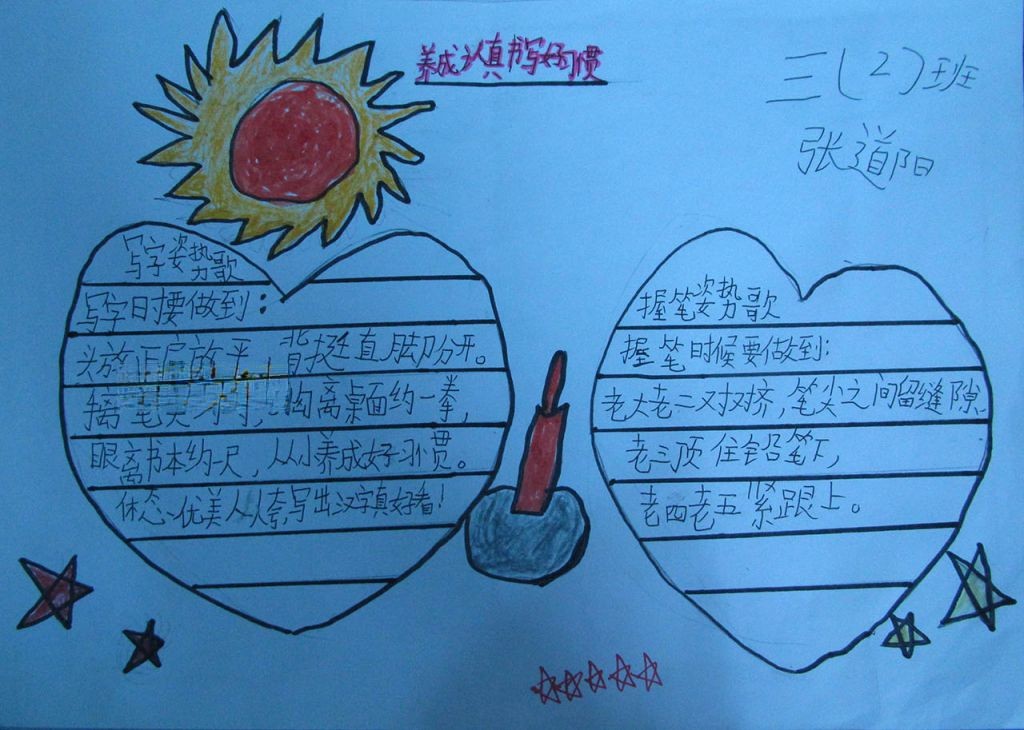 养成认真书写好习惯
三(2)班
张道阳
写字姿势歌
写字时要做到:
头放正肩放平,背挺直脚分开。
离笔尖一寸,胸离桌面约一拳,
眼离书本约一尺,从小养成好习惯。
体态优美人人夸,写出汉字真好看!
握笔姿势歌
握笔时候要做到:
老大老二对对挤,笔尖之间留缝隙,
老三顶住铅笔下,
老四老五紧跟上。